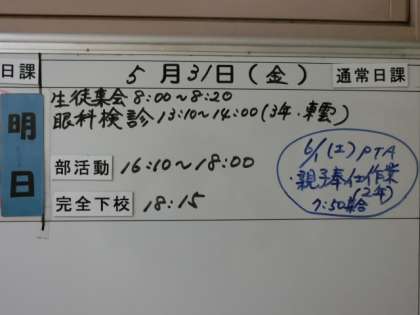 日課
5月31日(金)
通常日課
明日
生徒集会 8:00~8:20
眼科検診 13:10~14:00(3年・東雲)
部活動 16:10~18:00
完全下校 18:15
6/1(土)PTA
・親子奉仕作業
(2年)
7:50集合